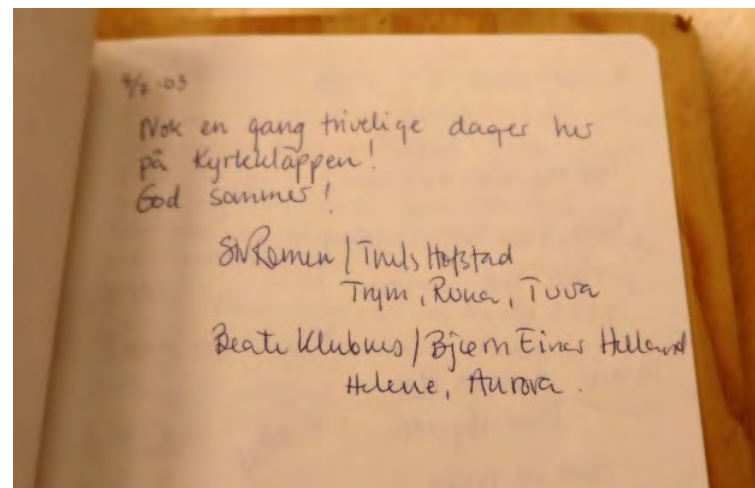 4/7-03
Nok en gang trivelige dager her
på Kyrkkläppen!
God sommer!
Siv Romen / Truls Hofstad
Trym, Runa, Tuva
Beate Klubnes / Bjørn Einar Helland
Helene, Aurora.